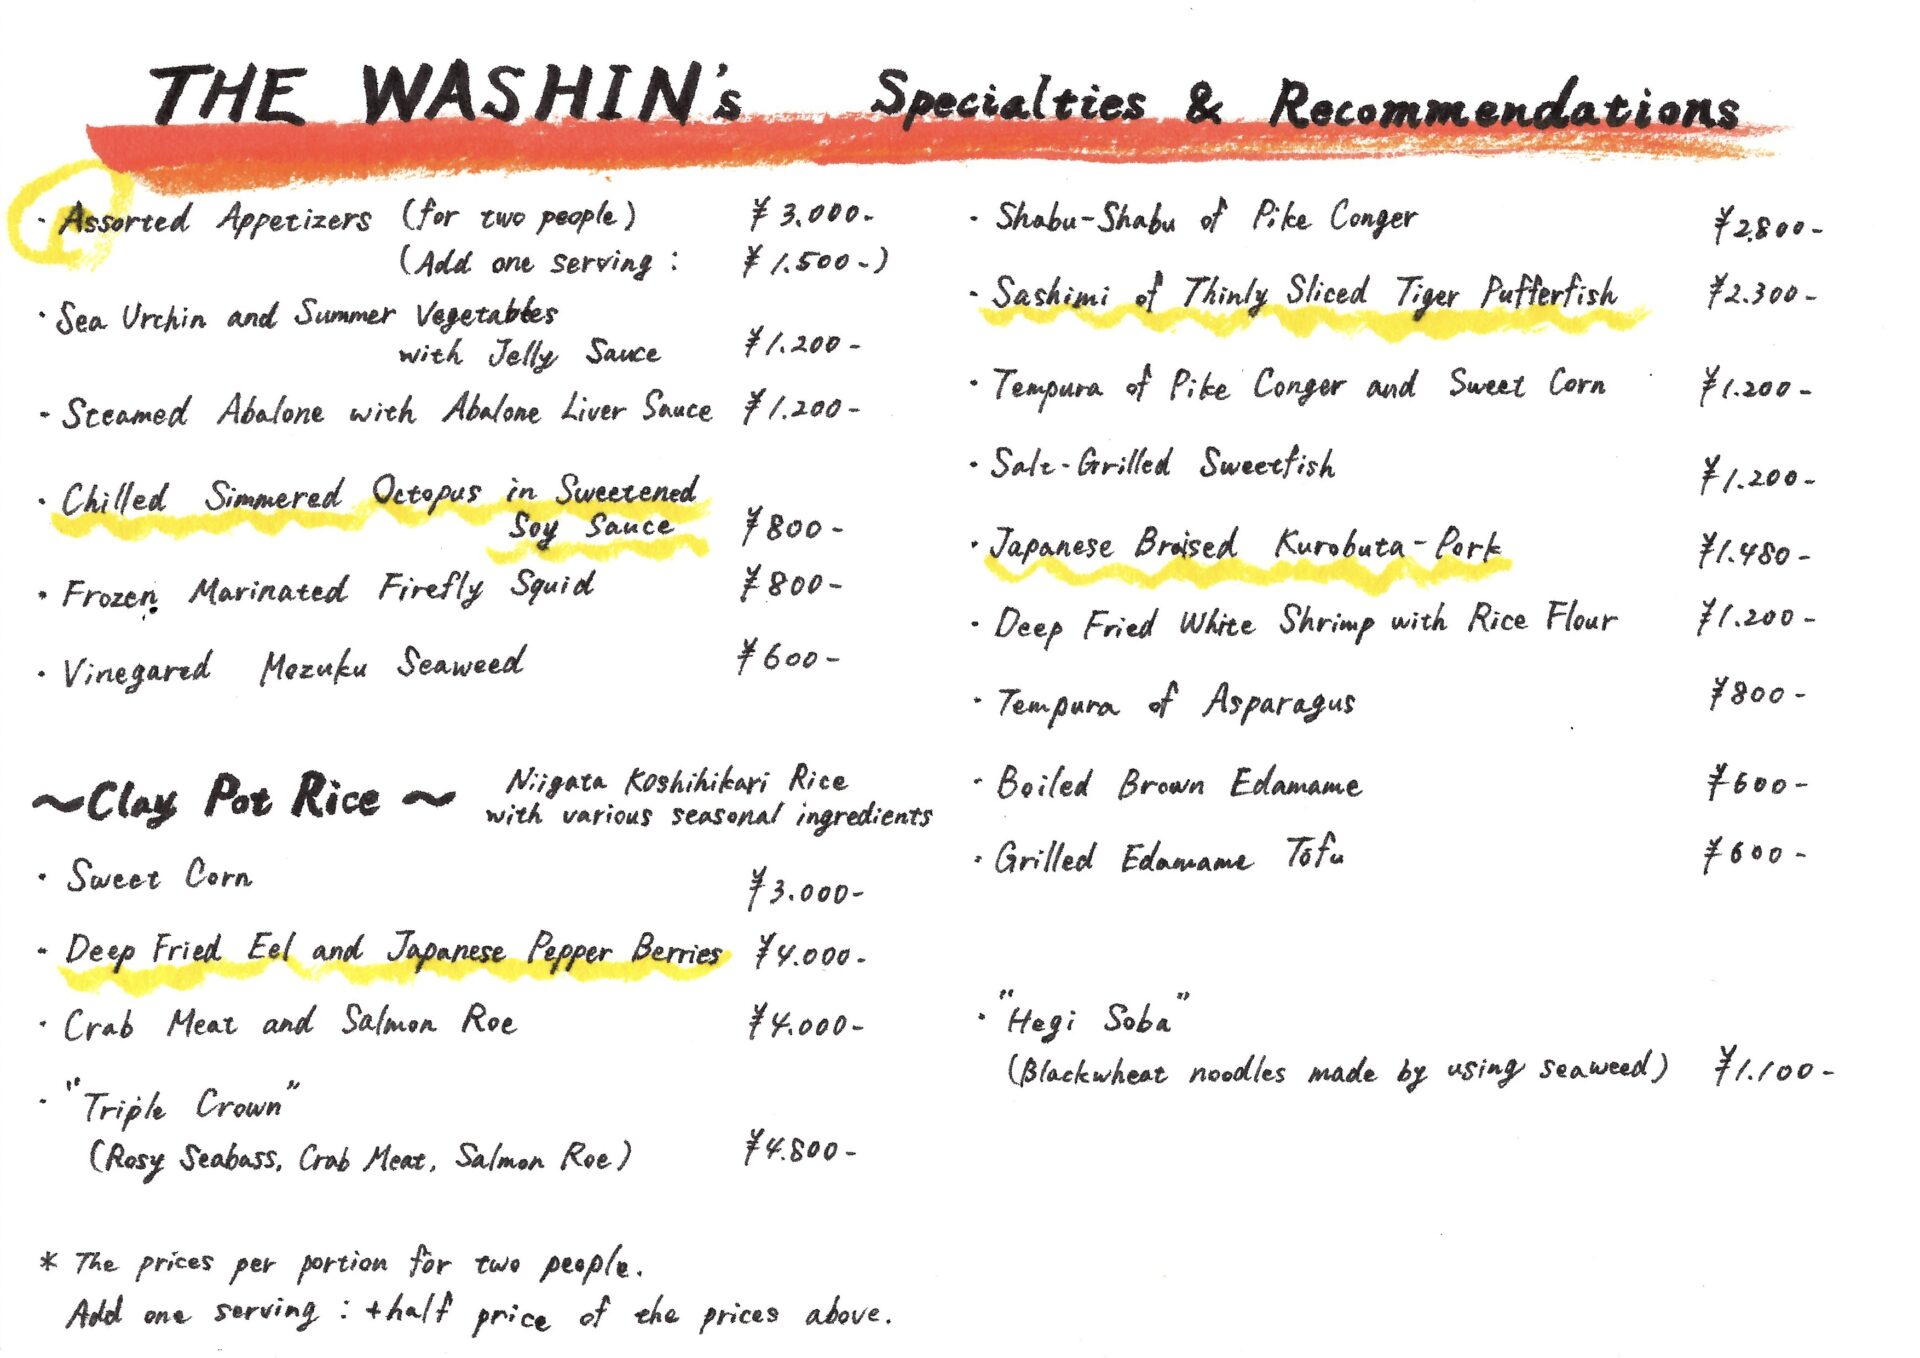 THE WASHIN's Specialties & Recommendations
· Assorted Appetizers (for two people) ¥3.000-
(Add one serving : ¥1.500-)
· Sea Urchin and Summer Vegetables
with Jelly Sauce ¥1.200-
· Steamed Abalone with Abalone Liver Sauce ¥1.200-
· Chilled Simmered Octopus in Sweetened
Soy Sauce ¥800-
· Frozen Marinated Firefly Squid ¥800-
· Vinegared Mozuku Seaweed ¥600-
~Clay Pot Rice~ Niigata Koshihikari Rice
with various seasonal ingredients
· Sweet Corn ¥3.000-
· Deep Fried Eel and Japanese Pepper Berries ¥4.000-
· Crab Meat and Salmon Roe ¥4.000-
· "Triple Crown"
(Rosy Seabass, Crab Meat, Salmon Roe) ¥4.800-
* The prices per portion for two people.
Add one serving : +half price of the prices above.
· Shabu-Shabu of Pike Conger ¥2.800-
· Sashimi of Thinly Sliced Tiger Pufferfish ¥2.300-
· Tempura of Pike Conger and Sweet Corn ¥1.200-
· Salt-Grilled Sweetfish ¥1.200-
· Japanese Braised Kurobuta-Pork ¥1.480-
· Deep Fried White Shrimp with Rice Flour ¥1.200-
· Tempura of Asparagus ¥800-
· Boiled Brown Edamame ¥600-
· Grilled Edamame Tofu ¥600-
· "Hegi Soba"
(Blackwheat noodles made by using seaweed) ¥1.100-